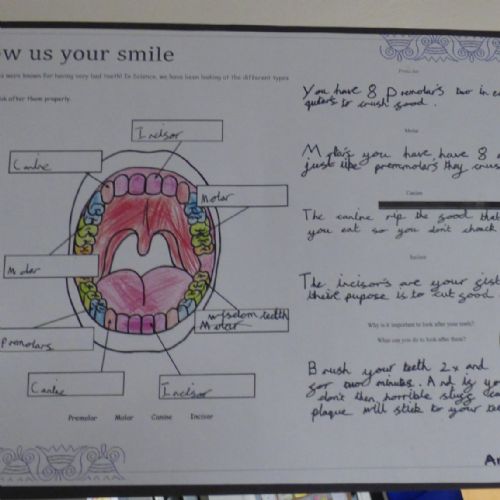 ow us your smile
s were known for having very bad teeth! In Science, we have been looking at the different types
ok after them properly.
Incisor
Canine
Molar
Molar
wisdom teeth
Molar
Premolars
Canine
Incisor
Premolar Molar Canine Incisor
Premolar
You have 8 Premolars two in ea
to crush food.
Molar
Molars you have have 8 a
just like premmolars they crus
Canine
The canine rip the food that
you eat so you don't choack
Incisor
The incisors are your fist
there pupose is to cut food
Why is it important to look after your teeth?
What can you do to look after them?
Brush your teeth 2x and
for two minutes. And if yo
don't then horrible stuff
plaque will stick to your tee